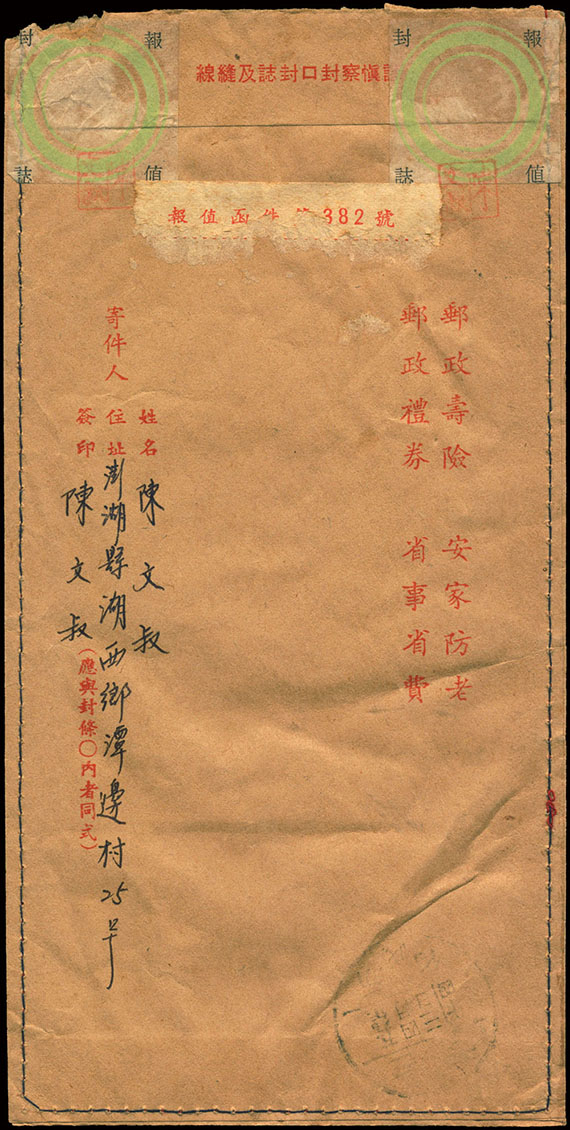 封 報
誌 值
封 報
誌 值
慎察封口封誌及縫線
報值函件第382號
郵政壽險 安家防老
郵政禮券 省事省費
寄件人
姓名 陳文叔
住址 澎湖縣湖西鄉潭邊村25号
簽印 陳文叔
(應與封條○內者同式)